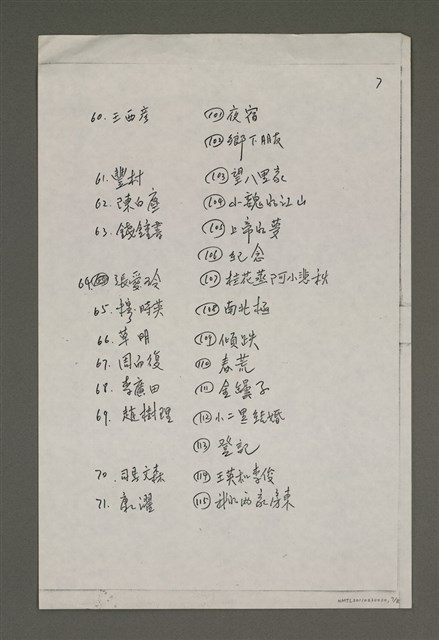 7
60. 王西彦 (101) 夜宿
(102) 鄉下朋友
61. 豐村 (103) 望八里家
62. 陳白塵 (104) 小魏的江山
63. 錢鍾書 (105) 上帝的夢
(106) 紀念
64. 張愛玲 (107) 桂花蒸阿小悲秋
65. 穆時英 (108) 南北極
66. 草明 (109) 傾跌
67. 田 復 (110) 春荒
68. 李廣田 (111) 金罎子
69. 趙樹理 (112) 小二黑結婚
(113) 登記
70. 司馬文森 (114) 王英和李俊
71. 康濯 (115) 我的兩家房東